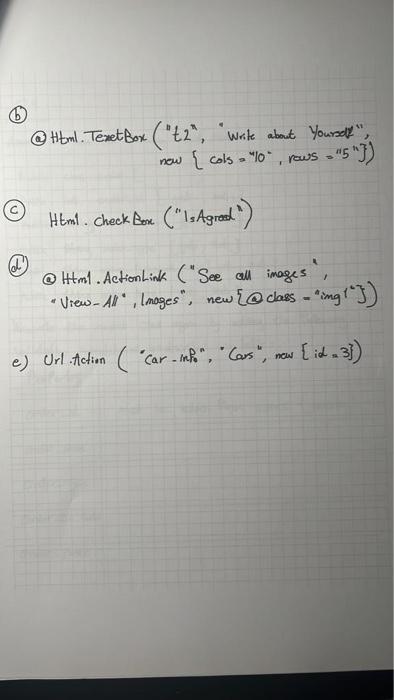 (b)
@ Html.TextBox ("t2", "Write about Yourself",
new { cols = "10", rows = "5"})
(c)
Html.checkBox ("IsAgreed")
(d)
@ Html.ActionLink ("See all images",
"View-All", Images", new {@class = "img1"})
e) Url.Action ( "Car-info", "Cars", new {id = 3})